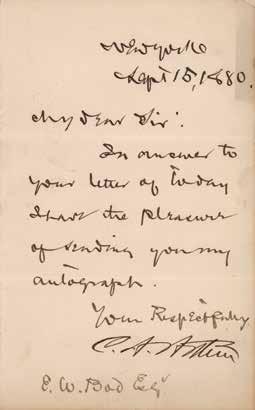 New York
Sept 15, 1880.
My Dear Sir:
In answer to
your letter of today
I have the pleasure
of sending you my
autograph.
Your Respectfully
C. A. Arthur
E. W. Bod Esqr